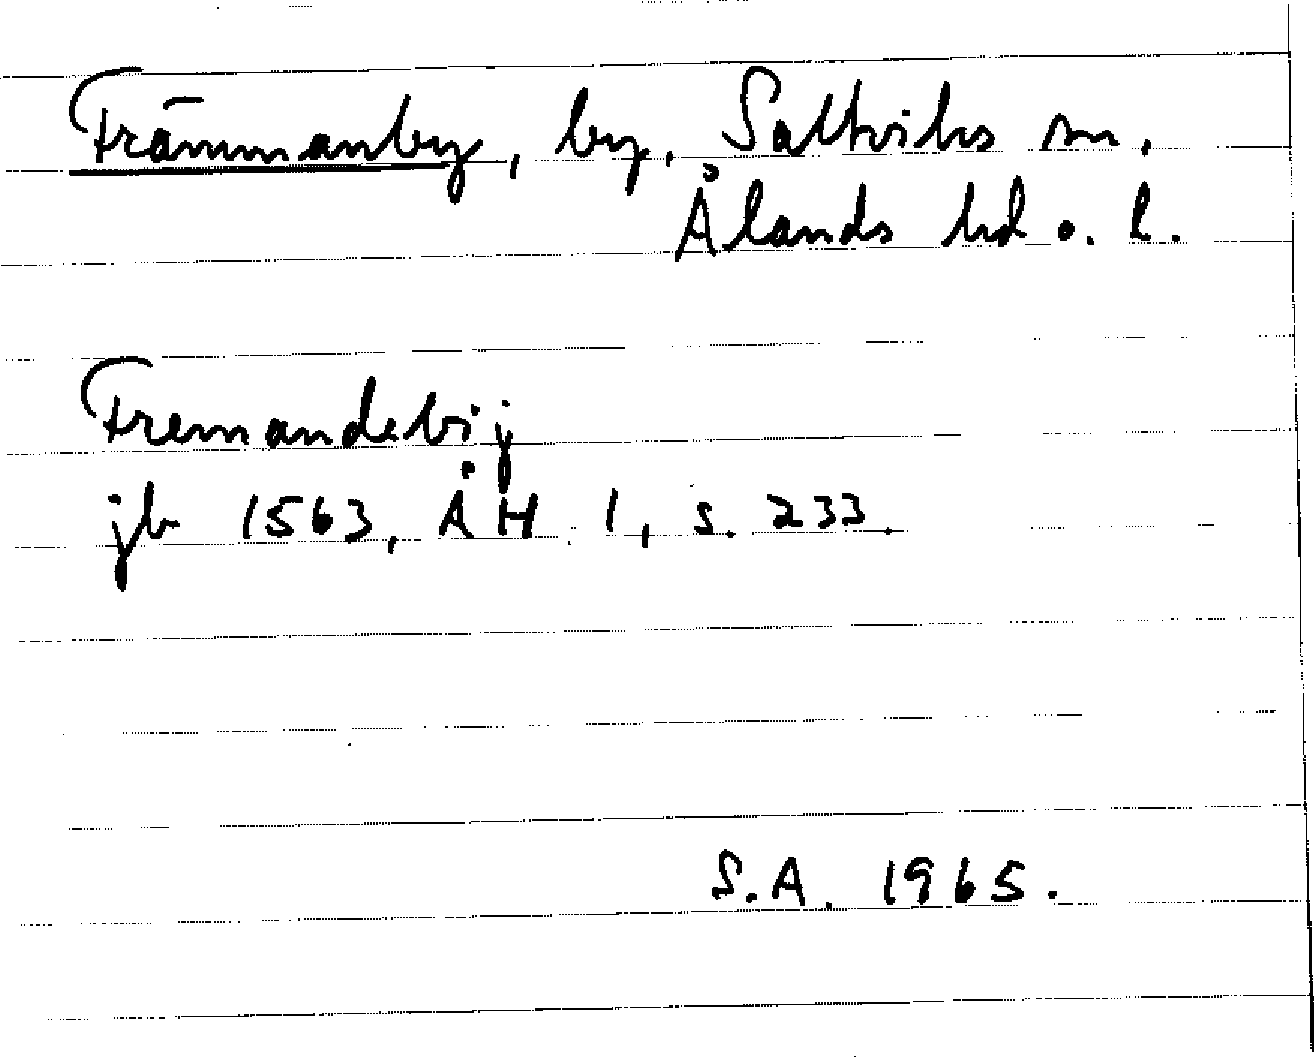 Främmanby, by, Saltviks sn,
Ålands hd o. l.
Fremandebij
jb 1563, ÅH 1, s. 233.
S.A. 1965.